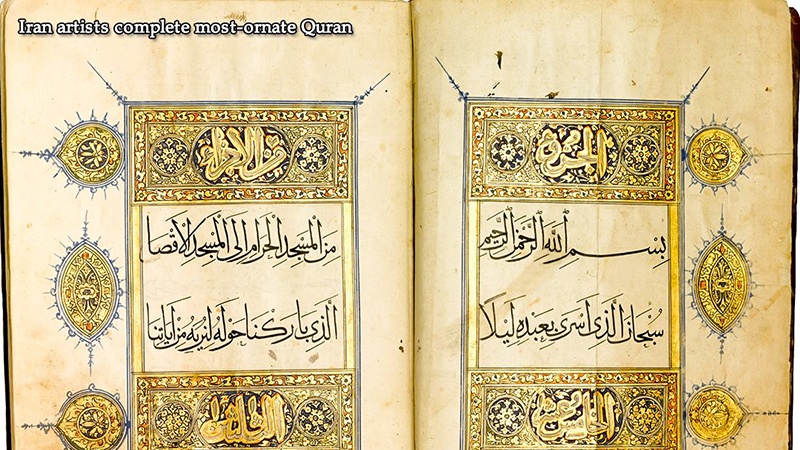 Iran artists complete most-ornate Quran
الجزؤ
بِسْمِ اللَّهِ الرَّحْمَنِ الرَّحِيمِ
سُبْحَانَ الَّذِى اَسْرَى بِعَبْدِهِ لَيْلًا
الخامس عشر
من الاجزاء
مِنَ الْمَسْجِدِ الْحَرَامِ اِلَى الْمَسْجِدِ الْاَقْصَا
الَّذِى بَارَكْنَا حَوْلَهُ لِنُرِيَهُ مِنْ اٰيَاتِنَا
الثلثين